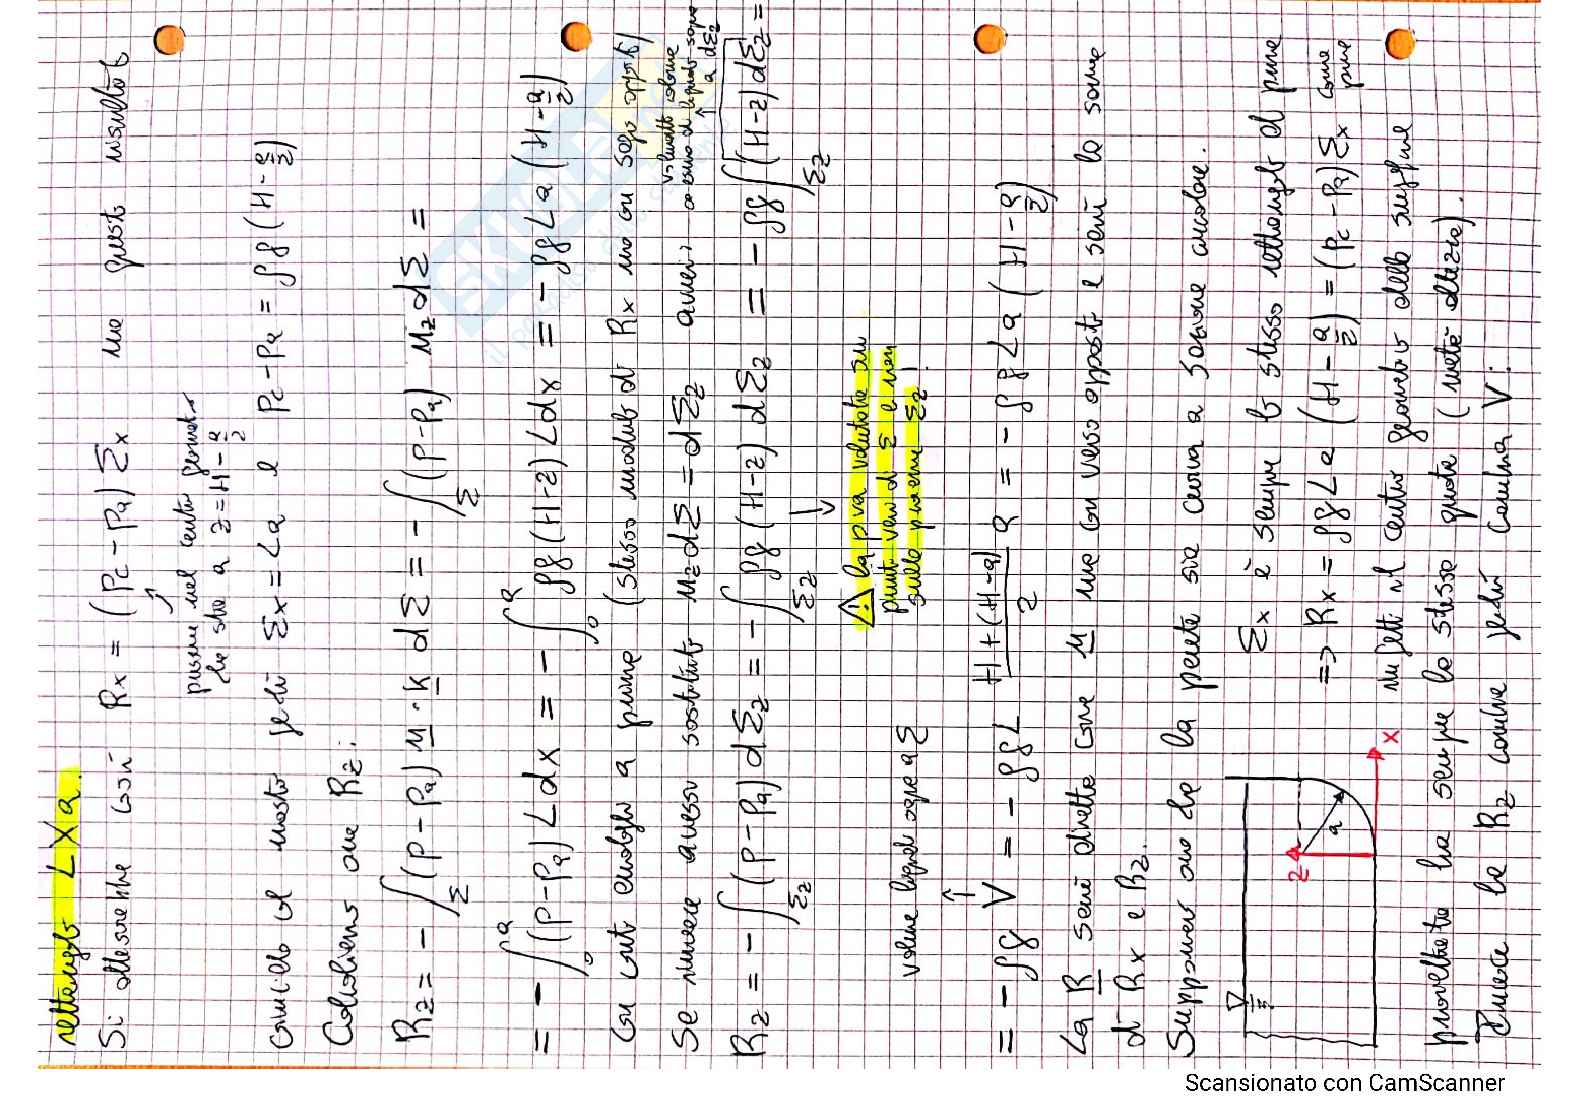 rettangolo L×a.
Si otterrebbe così Rx = (Pc - Pa) Σx ma questo risultato
pressione nel centro geometrico
che sta a z = H - a/2
coincide col nostro perché Σx = La e Pc - Pa = ρg (H - a/2)
Calcoliamo ora Rz:
Rz = - ∫Σ (P - Pa) u · k dΣ = - ∫Σ (P - Pa) uz dΣ =
= - ∫₀ᵃ (P - Pa) L dx = - ∫₀ᵃ ρg (H - z) L dx = - ρg L a (H - a/2)
con conti analoghi a prima (stesso modulo di Rx ma con segni opposti)
Se invece avessi sostituito uz dΣ = dΣz avrei:
volumetto colonna
di liquido sopra
a dΣz
Rz = - ∫Σz (P - Pa) dΣz = - ∫Σz ρg (H - z) dΣz = - ρg ∫Σz (H - z) dΣz =
la p va valutata sui
punti veri di Σ e non
sulla proiezione Σz!
volume liquido sopra a Σ
= - ρg V = - ρg L (H + (H - a))/2 a = - ρg L a (H - a/2)
La R sarà diretta come u ma con verso opposto e sarà la somma
di Rx e Rz.
Supponiamo ora che la parete sia curva a sezione circolare.
Σx è sempre lo stesso rettangolo di prima
=> Rx = ρg L a (H - a/2) = (Pc - Pa) Σx come prima
z
a
x
infatti il centro geometrico della superficie
proiettata ha sempre la stessa quota (metà altezza).
Invece la Rz cambia perché cambia V:
Scansionato con CamScanner